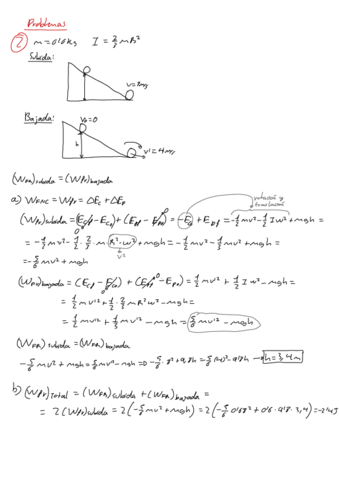 Problemas
② m=0'6kg I=2/3 mR²
Subida:
v=8m/s
Bajada:
V₀=0
h
v'=4m/s
(W_FR)subida=(W_FR)bajada
a) W_FNC = W_FR = ΔE_C + ΔE_P
rotacion y
translacion
(W_FR)subida=(E_Cf-E_C0)+(E_Pf-E_P0)=-E_C0+E_Pf=-1/2 mv²-1/2 I w²+mgh=
=-1/2 mv²-1/2·2/3 m R²·w²+mgh=-1/2 mv²-1/3 mv²+mgh=
v²
=-5/6 mv²+mgh
(W_FR)bajada=(E_Cf-E_C0)+(E_Pf-E_P0)=1/2 mv'²+1/2 I w²-mgh=
=1/2 mv'²+1/2·2/3 mR²w²-mgh=
=1/2 mv'²+1/3 mv'²-mgh=5/6 mv'²-mgh
(W_FR)subida=(W_FR)bajada
-5/6 mv²+mgh=5/6 mv'²-mgh⇒-5/6·8²+9,8h=5/6·4²-9'8h→h=3,4m
b) (W_FR)Total=(W_FR)subida+(W_FR)bajada=
=2(W_FR)subida=2(-5/6 mv²+mgh)=2(-5/6·0'6·8²+0'6·9'8·3,4)=-24J